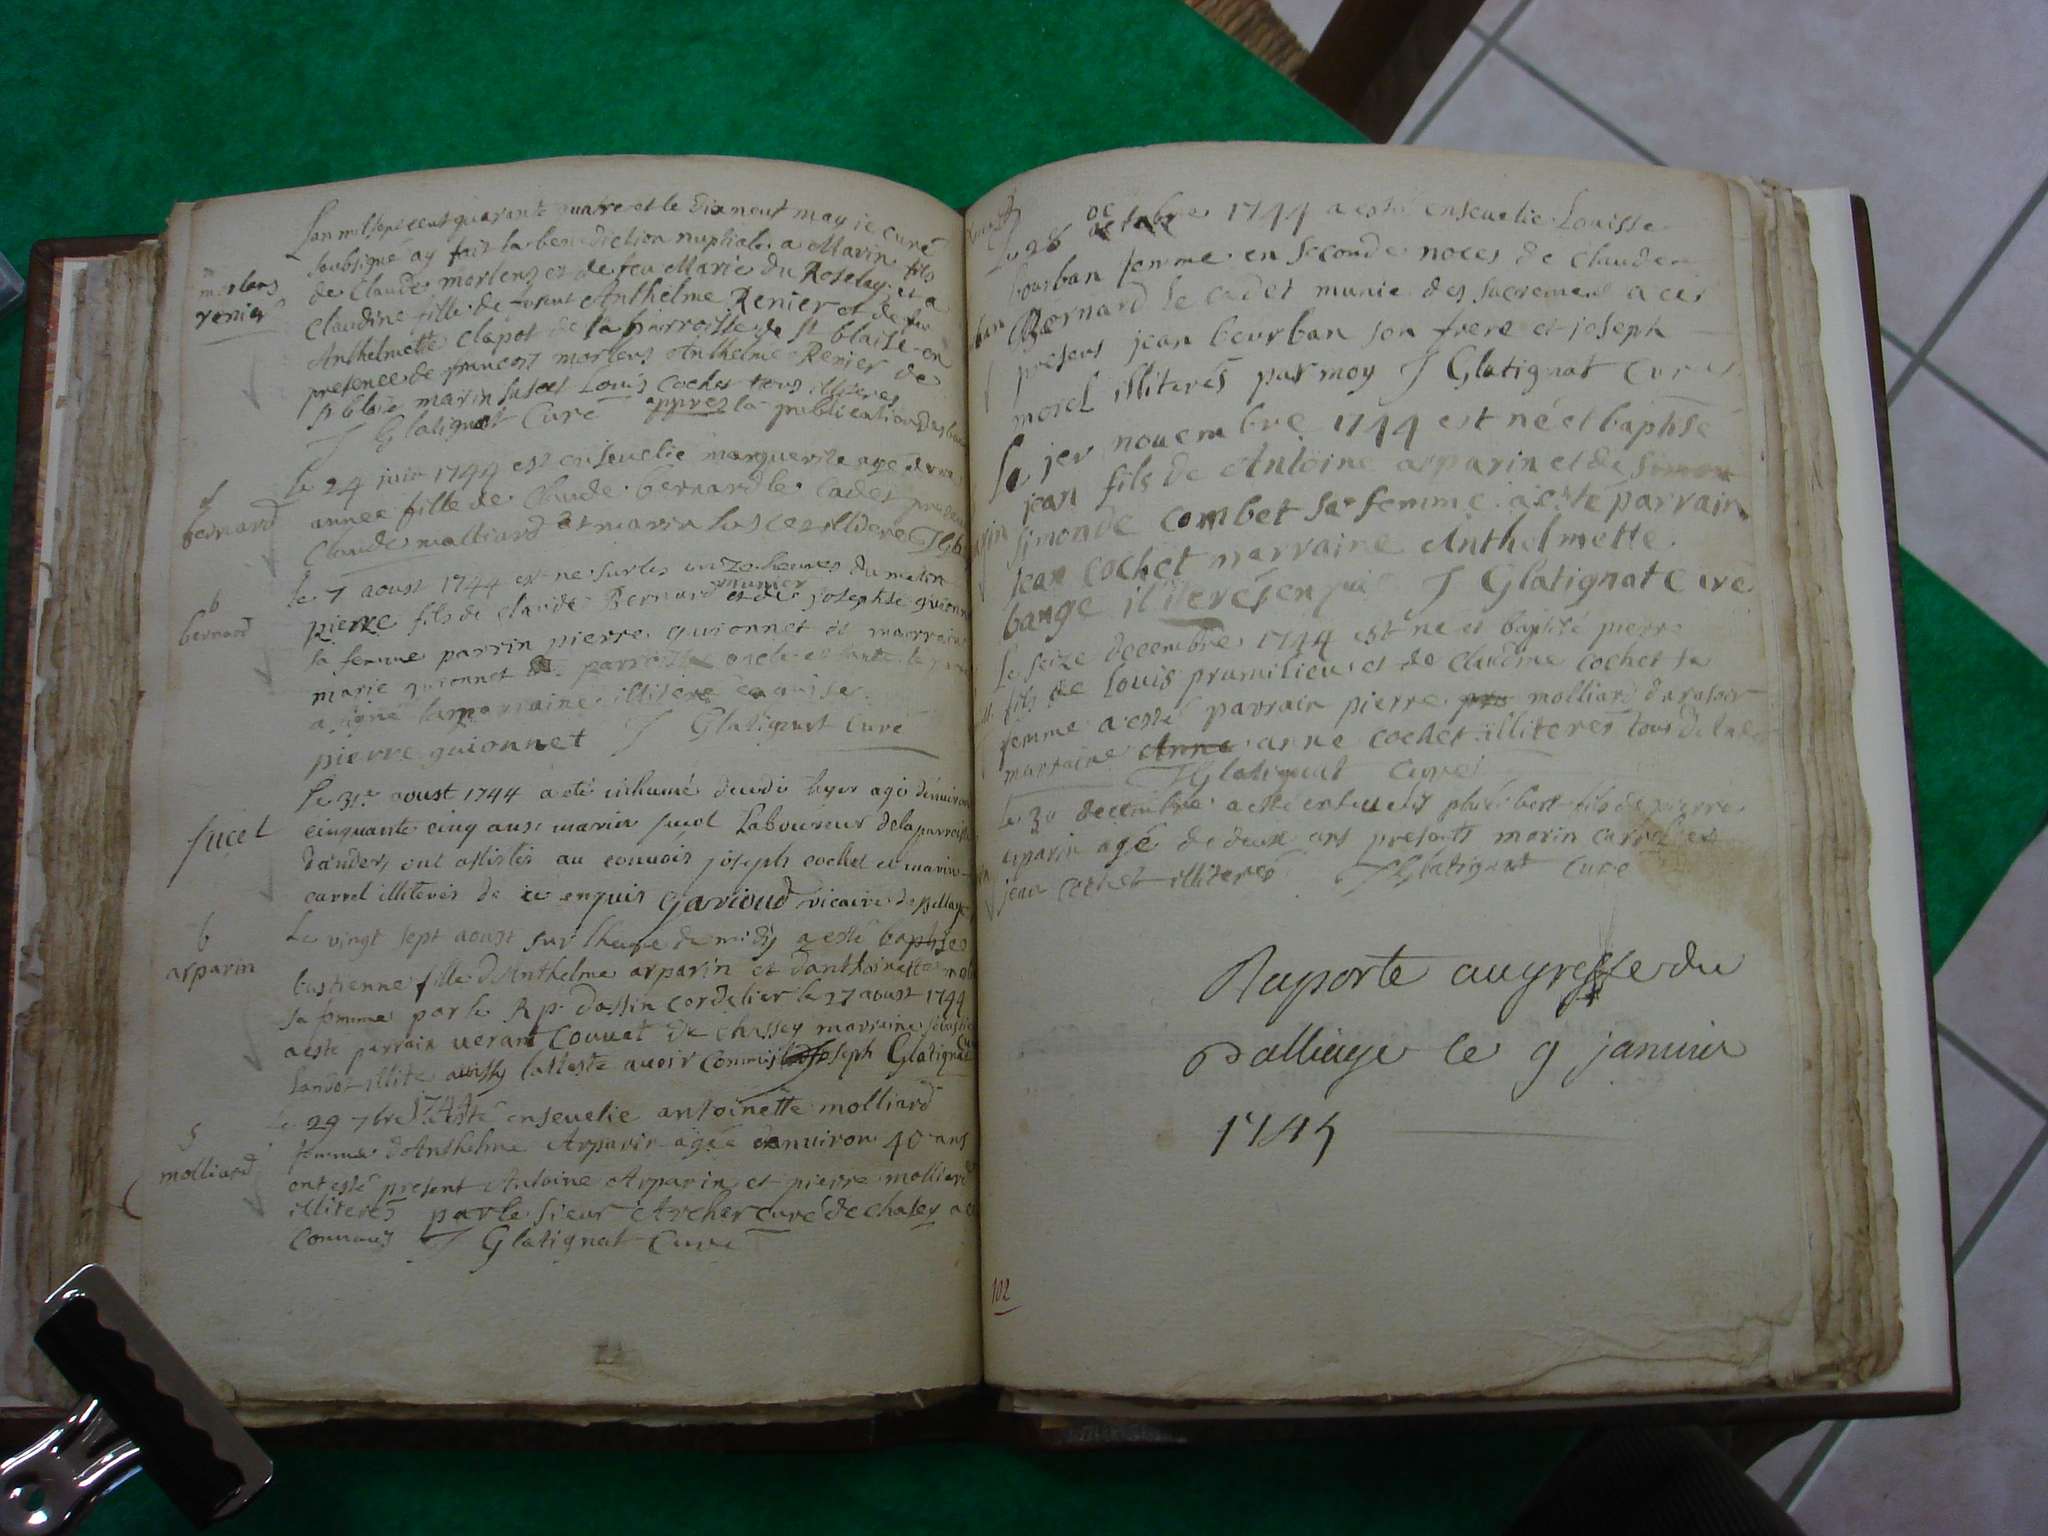 Lan mil sept cent quarante quatre et le dix neuf may je curé
soubsigné ay fait la benediction nuptiale a Marin fils
de Claude morlens et de feu Marie du Roselay et a
morlens
renier
Claudine fille de Anthelme Renier et de feu
Anthelmette Clapot de la parroisse de st blaise en
presence de francois morlens Anthelme Renier de
st blaise marin Louis Cochet tous illiteres
J Glatignat Curé appres la publication des bans
le 24 juin 1744 est ensevelie marguerite agé
s
bernard
année fille de Claude bernard le cadet
Claude molliard et marin illiteré
le 7 aoust 1744 est ne sur les onze heures du matin
b
bernard
pierre fils de claude Bernard et de josephte guionnet
sa femme parrin pierre guionnet et marraine
marie guionnet
a signé la marraine illiteré
pierre guionnet J Glatignat Curé
Le 31e aoust 1744 a eté inhumé decedé hyer agé denviron
suçet
cinquante cinq ans marin suçet Laboureur de la parroisse
dandert ont assistés au convois joseph cochet et marin
carrel illiterés de ce enquis Garioud vicaire de
b
arparin
Le vingt sept aoust sur lheure de midy a esté baptisee
bastienne fille dAnthelme arparin et danthoinette
sa femme par le R p dossin cordelier le 27 aoust 1744
a esté parrain verant Couvat de Chassey marraine
illite latteste avoir commis Joseph Glatignat
le 29 7bre 1744 a esté ensevelie antoinette molliard
s
molliard
femme dAnthelme Arparin agée denviron 40 ans
ont esté present Antoine Arparin et pierre molliard
illiterés par le sieur Archer curé de chasey a ce
commis J Glatignat Curé
Le 28 octobre 1744 a esté ensevelie Louisse
bourban femme en seconde noces de Claude
Bernard le cadet munie des sacrement a ces
presens jean bourban son frere et joseph
morel illiterés par moy J Glatignat Curé
Le jer novembre 1744 est né et baptisé
jean fils de Antoine arparin et de
simonde combet sa femme a esté parrain
jean cochet marraine Anthelmette
bange illiterés enquis J Glatignat Curé
Le seize decembre 1744 est ne et baptisé pierre
fils de Louis prumilieu et de Claudine cochet sa
femme a esté parrain pierre molliard
marraine Anne anne cochet illiteres tous
J Glatignat Curé
le 30 decembre a esté ensevelis philibert fils de pierre
arparin agé de deux ans presents marin carrel et
jean cochet illiterés J Glatignat Curé
Raporte au greffe du
Balliage le 9 janvier
1745
102